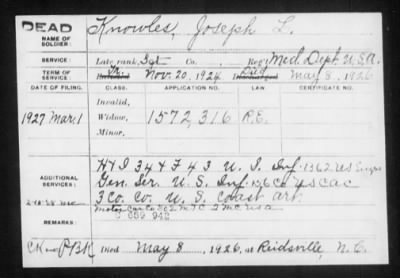 DEAD
NAME OF SOLDIER:
Knowles, Joseph L.
SERVICE:
Late rank, Sgt Co. Reg't Med Dept U.S.A.
TERM OF SERVICE:
Nov. 20, 1924 May 8, 1926
DATE OF FILING. CLASS. APPLICATION NO. LAW. CERTIFICATE NO.
Invalid,
1927 Mar. 1 Widow, 1572,316 R.E.
Minor,
ADDITIONAL SERVICES:
34 & F 43 U. S. Inf. 1362 US
Gen. Ser. U. S. Inf. 136 Co USCAC
3 Co. Co. U. S. Coast Art.
REMARKS:
Died May 8, 1926, at Reidsville, N. C.